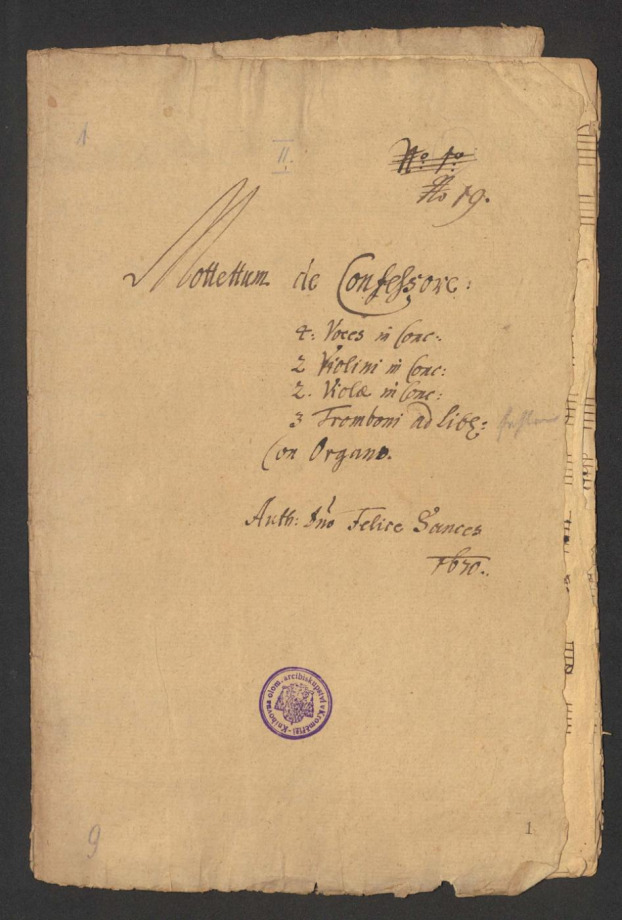 1
II.
No 1o
No 19.
Mottettum de Confessore:
4: Voces in Conc:
2 Violini in Conc:
2. Violæ in Conc:
3 Tromboni ad lib:
Con Organo.
Auth: Dno Felice Sances
1670.
Knihovna olom. arcibiskupství v Kroměříži
9
1